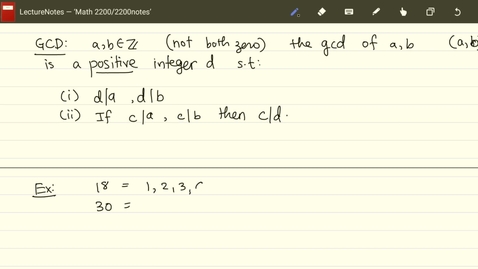 LectureNotes — 'Math 2200/2200notes'
GCD: a,b∈ℤ (not both zero) the gcd of a,b (a,b
is a positive integer d s.t:
(i) d|a , d|b
(ii) If c|a , c|b then c|d.
Ex: 18 = 1, 2, 3,
30 =